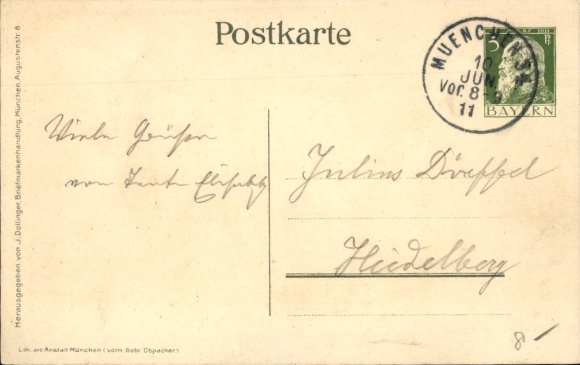 Postkarte
MUENCHEN
10
JUN.
Vor. 8-9
11
5 Pf.
BAYERN
Viele Grüße
von Tante Elisabeth
Julius Döpffel
Heidelberg
8
Herausgegeben von J. Dollinger, Briefmarkenhandlung, München, Augustenstr. 8
Lith. art. Anstalt München (vorm. Gebr. Obpacher.)